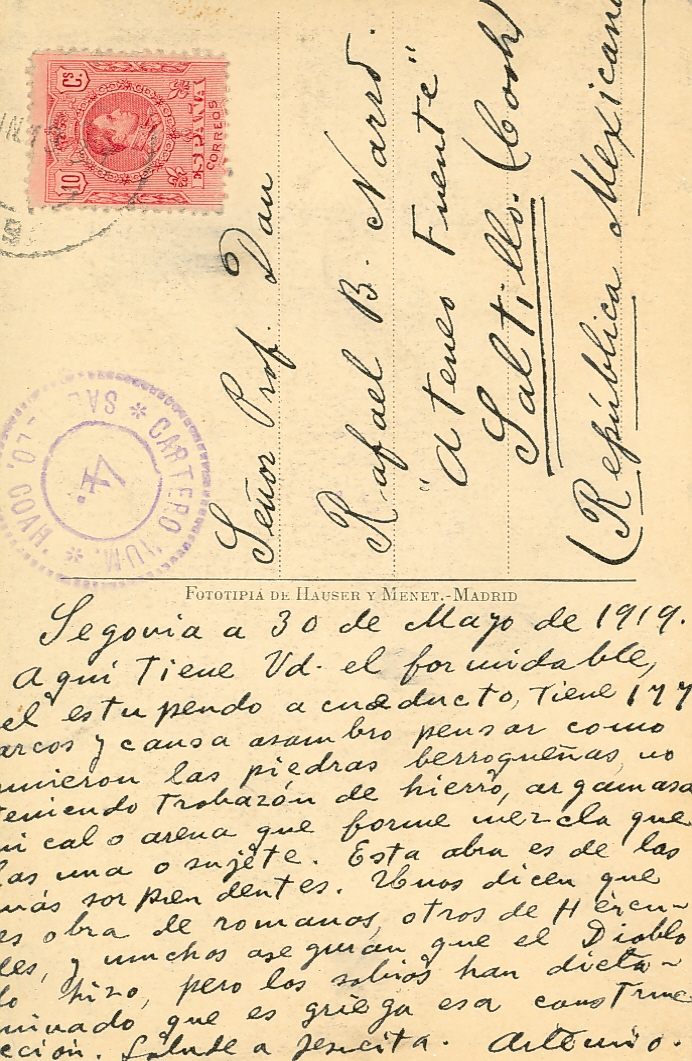 10 Cs
ESPAÑA
CORREOS
* CARTERO NUM. * SAL-LO. COAH.
4.
Señor Prof. Don
Rafael B. Narro.
"Atenes Fuente"
Saltillo. (Coah)
(República Mexicana
FOTOTIPIA DE HAUSER Y MENET.-MADRID
Segovia a 30 de Mayo de 1919.
Aquí tiene Vd. el formidable,
el estupendo acueducto, tiene 177
arcos y causa asombro pensar como
unieron las piedras berroqueñas, no
teniendo trabazón de hierro, argamasa
ni cal o arena que forme mezcla que
las una o sujéte. Esta obra es de las
más sorprendentes. Unos dicen que
es obra de romanos, otros de Hércu-
les, y muchos aseguran que el Diablo
lo hizo, pero los sabios han dicta-
minado que es griega esa construc
cción. Salude a Jesucita. Artemio.